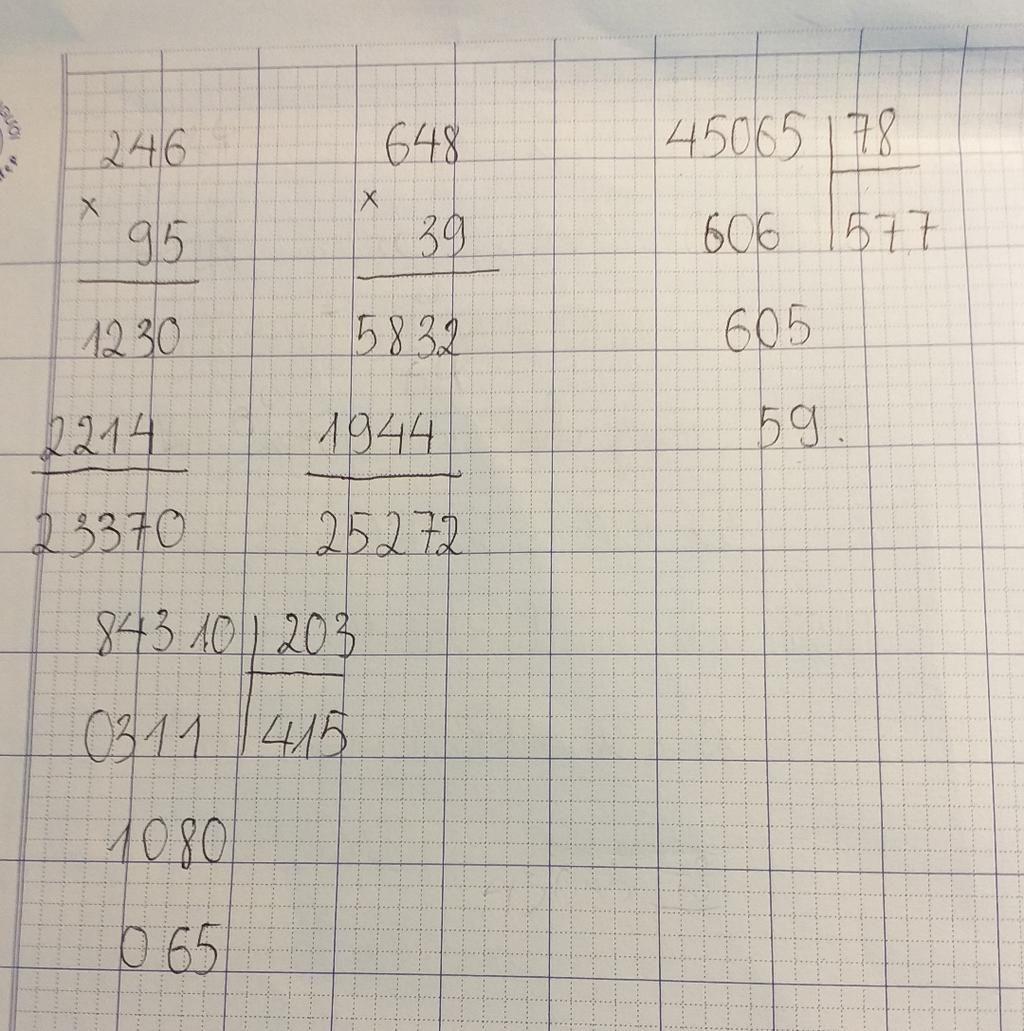 246
× 95
1230
2214
23370
648
× 39
5832
1944
25272
45065 78
606 577
605
59.
84310 203
0311 415
1080
065